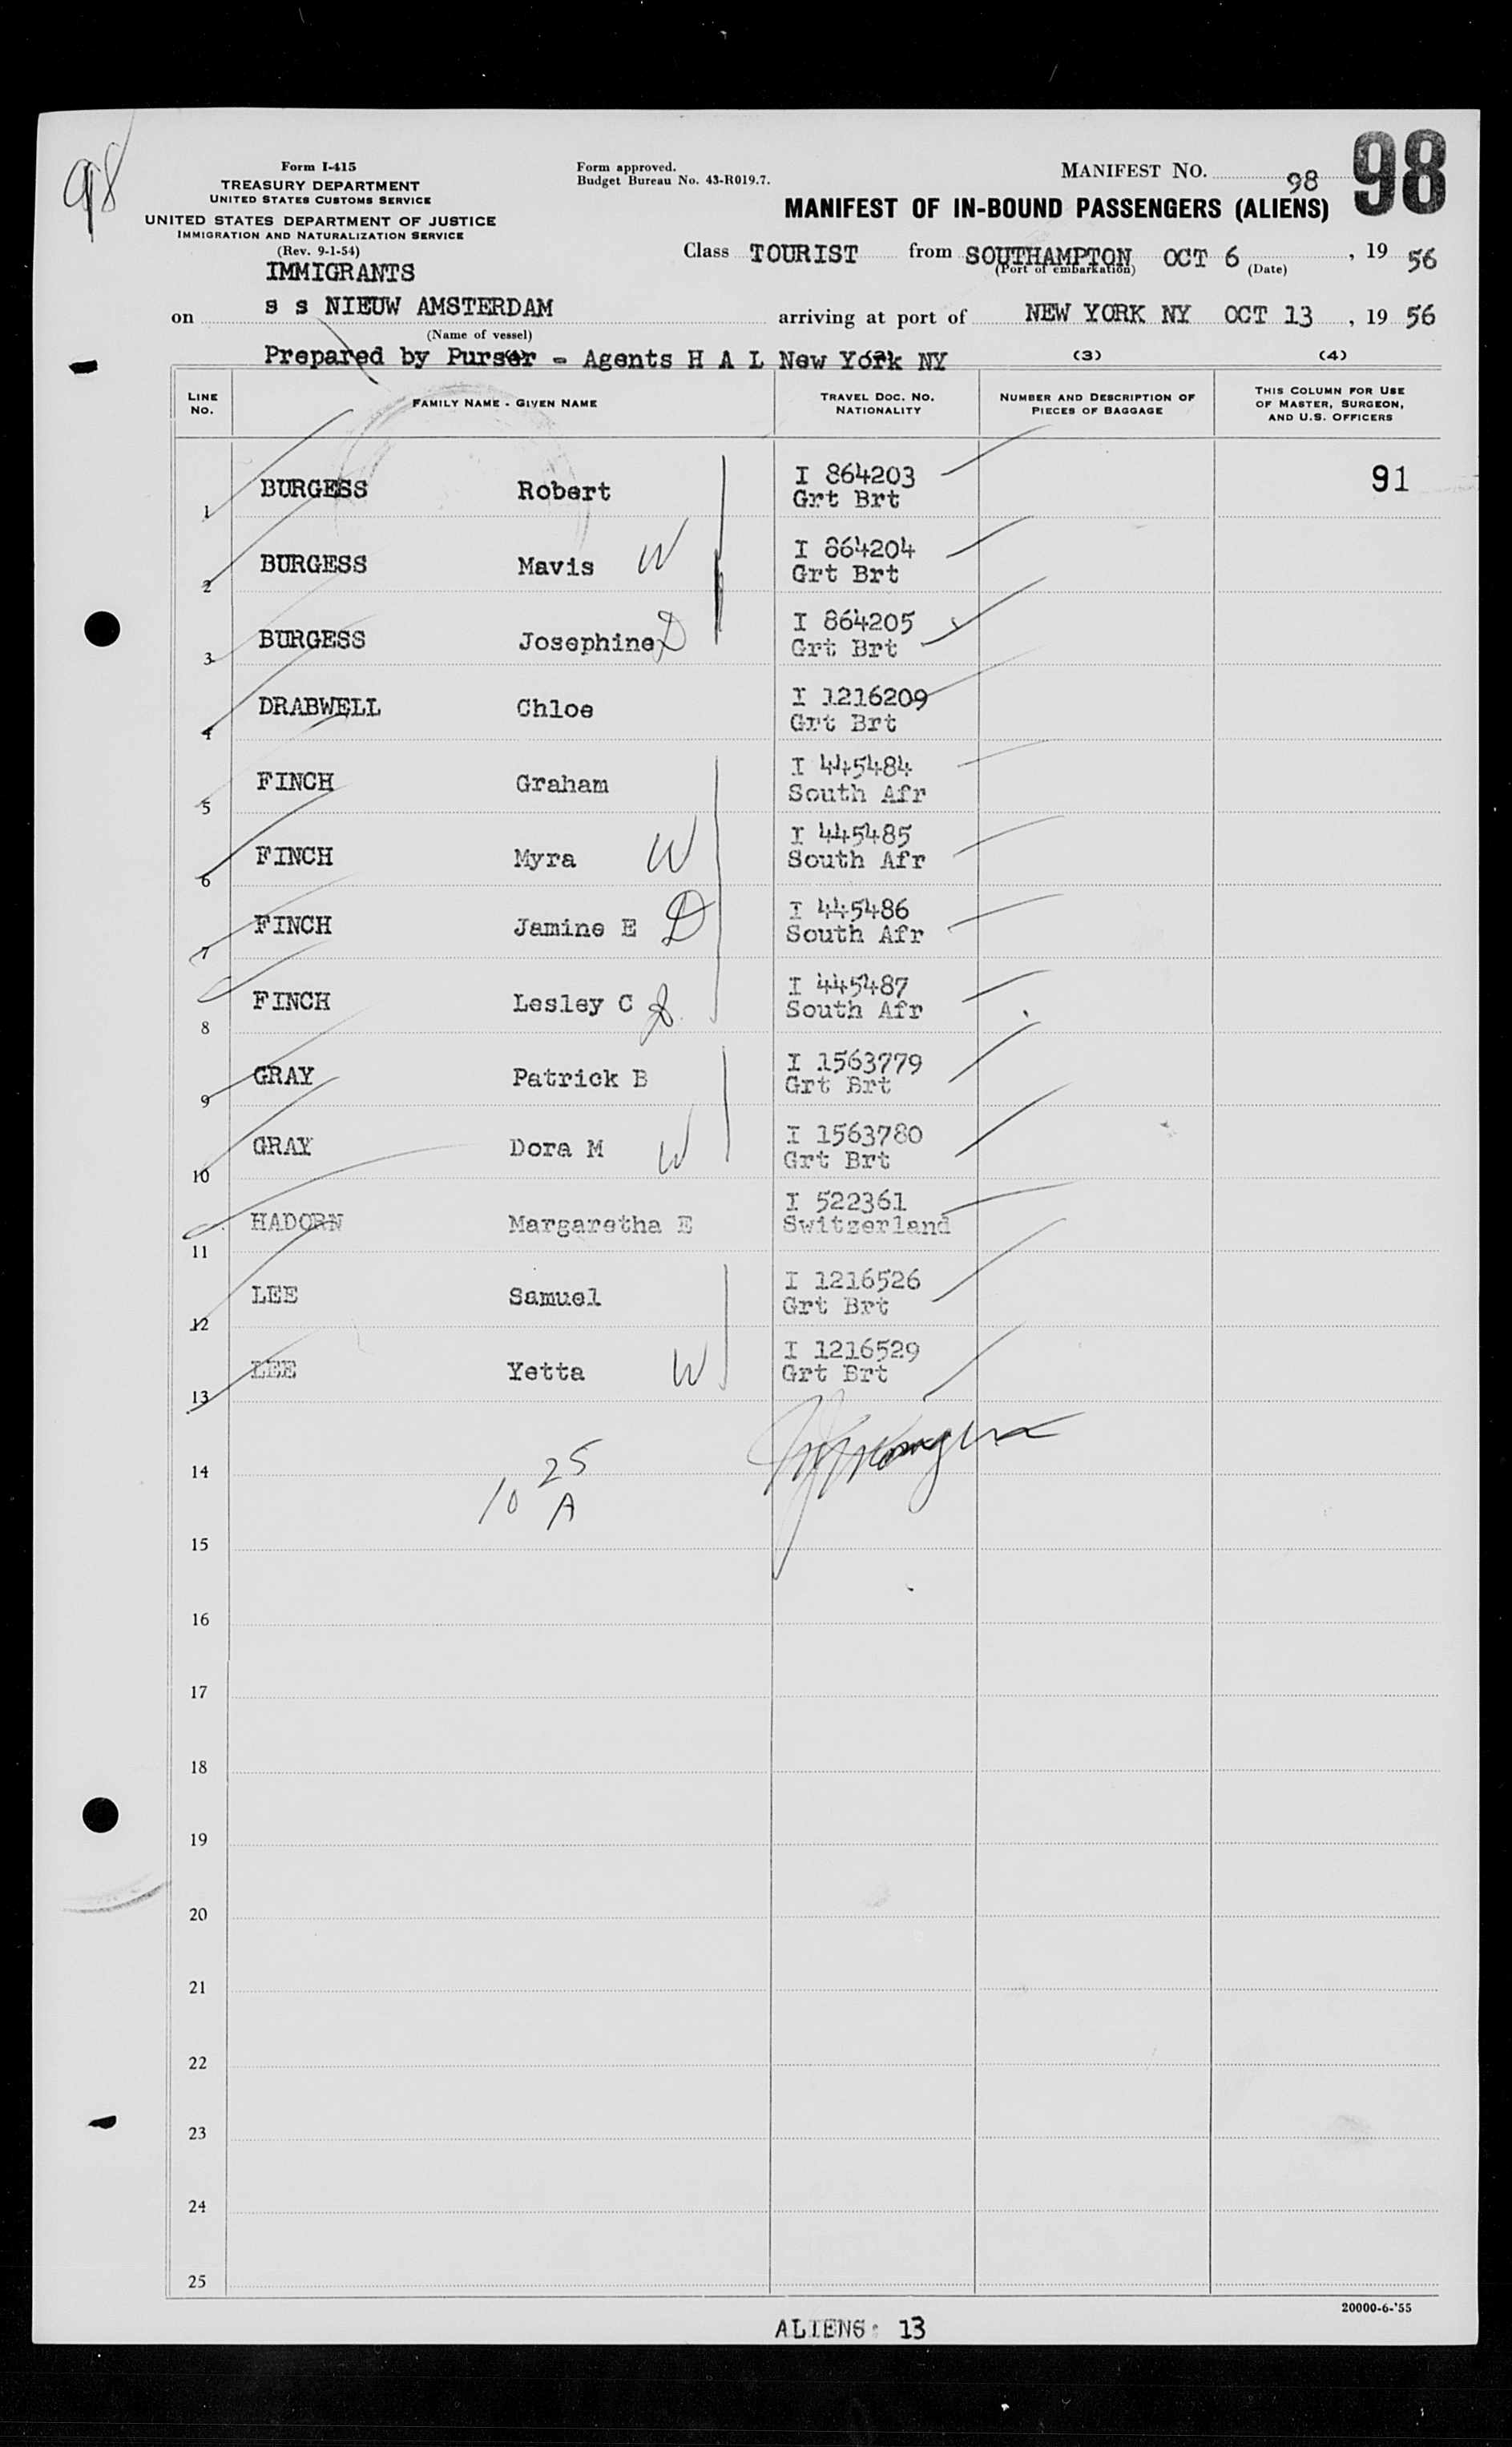 98
Form I-415
TREASURY DEPARTMENT
UNITED STATES CUSTOMS SERVICE
UNITED STATES DEPARTMENT OF JUSTICE
IMMIGRATION AND NATURALIZATION SERVICE
(Rev. 9-1-54)
Form approved.
Budget Bureau No. 43-R019.7.
MANIFEST NO. 98
98
MANIFEST OF IN-BOUND PASSENGERS (ALIENS)
Class TOURIST from SOUTHAMPTON OCT 6, 19 56
(Port of embarkation) (Date)
IMMIGRANTS
on s s NIEUW AMSTERDAM arriving at port of NEW YORK NY OCT 13, 19 56
(Name of vessel)
Prepared by Purser - Agents H A L New York NY
(3) (4)
LINE NO. FAMILY NAME - GIVEN NAME TRAVEL DOC. NO. NATIONALITY NUMBER AND DESCRIPTION OF PIECES OF BAGGAGE THIS COLUMN FOR USE OF MASTER, SURGEON, AND U.S. OFFICERS
1 BURGESS Robert I 864203 Grt Brt 91
2 BURGESS Mavis W I 864204 Grt Brt
3 BURGESS Josephine D I 864205 Grt Brt
4 DRABWELL Chloe I 1216209 Grt Brt
5 FINCH Graham I 445484 South Afr
6 FINCH Myra W I 445485 South Afr
7 FINCH Jamine E D I 445486 South Afr
8 FINCH Lesley C I 445487 South Afr
9 GRAY Patrick B I 1563779 Grt Brt
10 GRAY Dora M W I 1563780 Grt Brt
11 HADORN Margaretha E I 522361 Switzerland
12 LEE Samuel I 1216526 Grt Brt
13 LEE Yetta W I 1216529 Grt Brt
14
10 25 A
15
16
17
18
19
20
21
22
23
24
25
20000-6-'55
ALIENS: 13